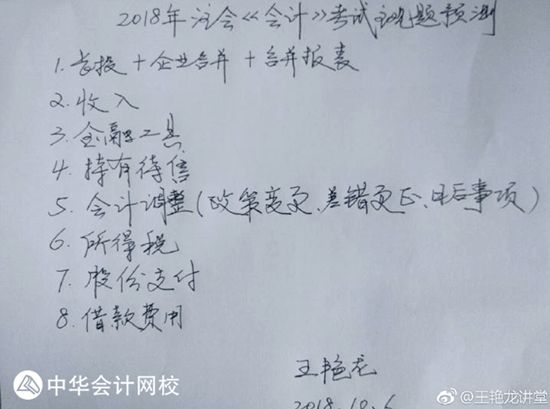 2018年注会《会计》考试主观题预测
1.长投+企业合并+合并报表
2.收入
3.金融工具
4.持有待售
5.会计调整(政策变更、差错更正、日后事项)
6.所得税
7.股份支付
8.借款费用
王艳龙
2018.10.6
中华会计网校
@王艳龙讲堂